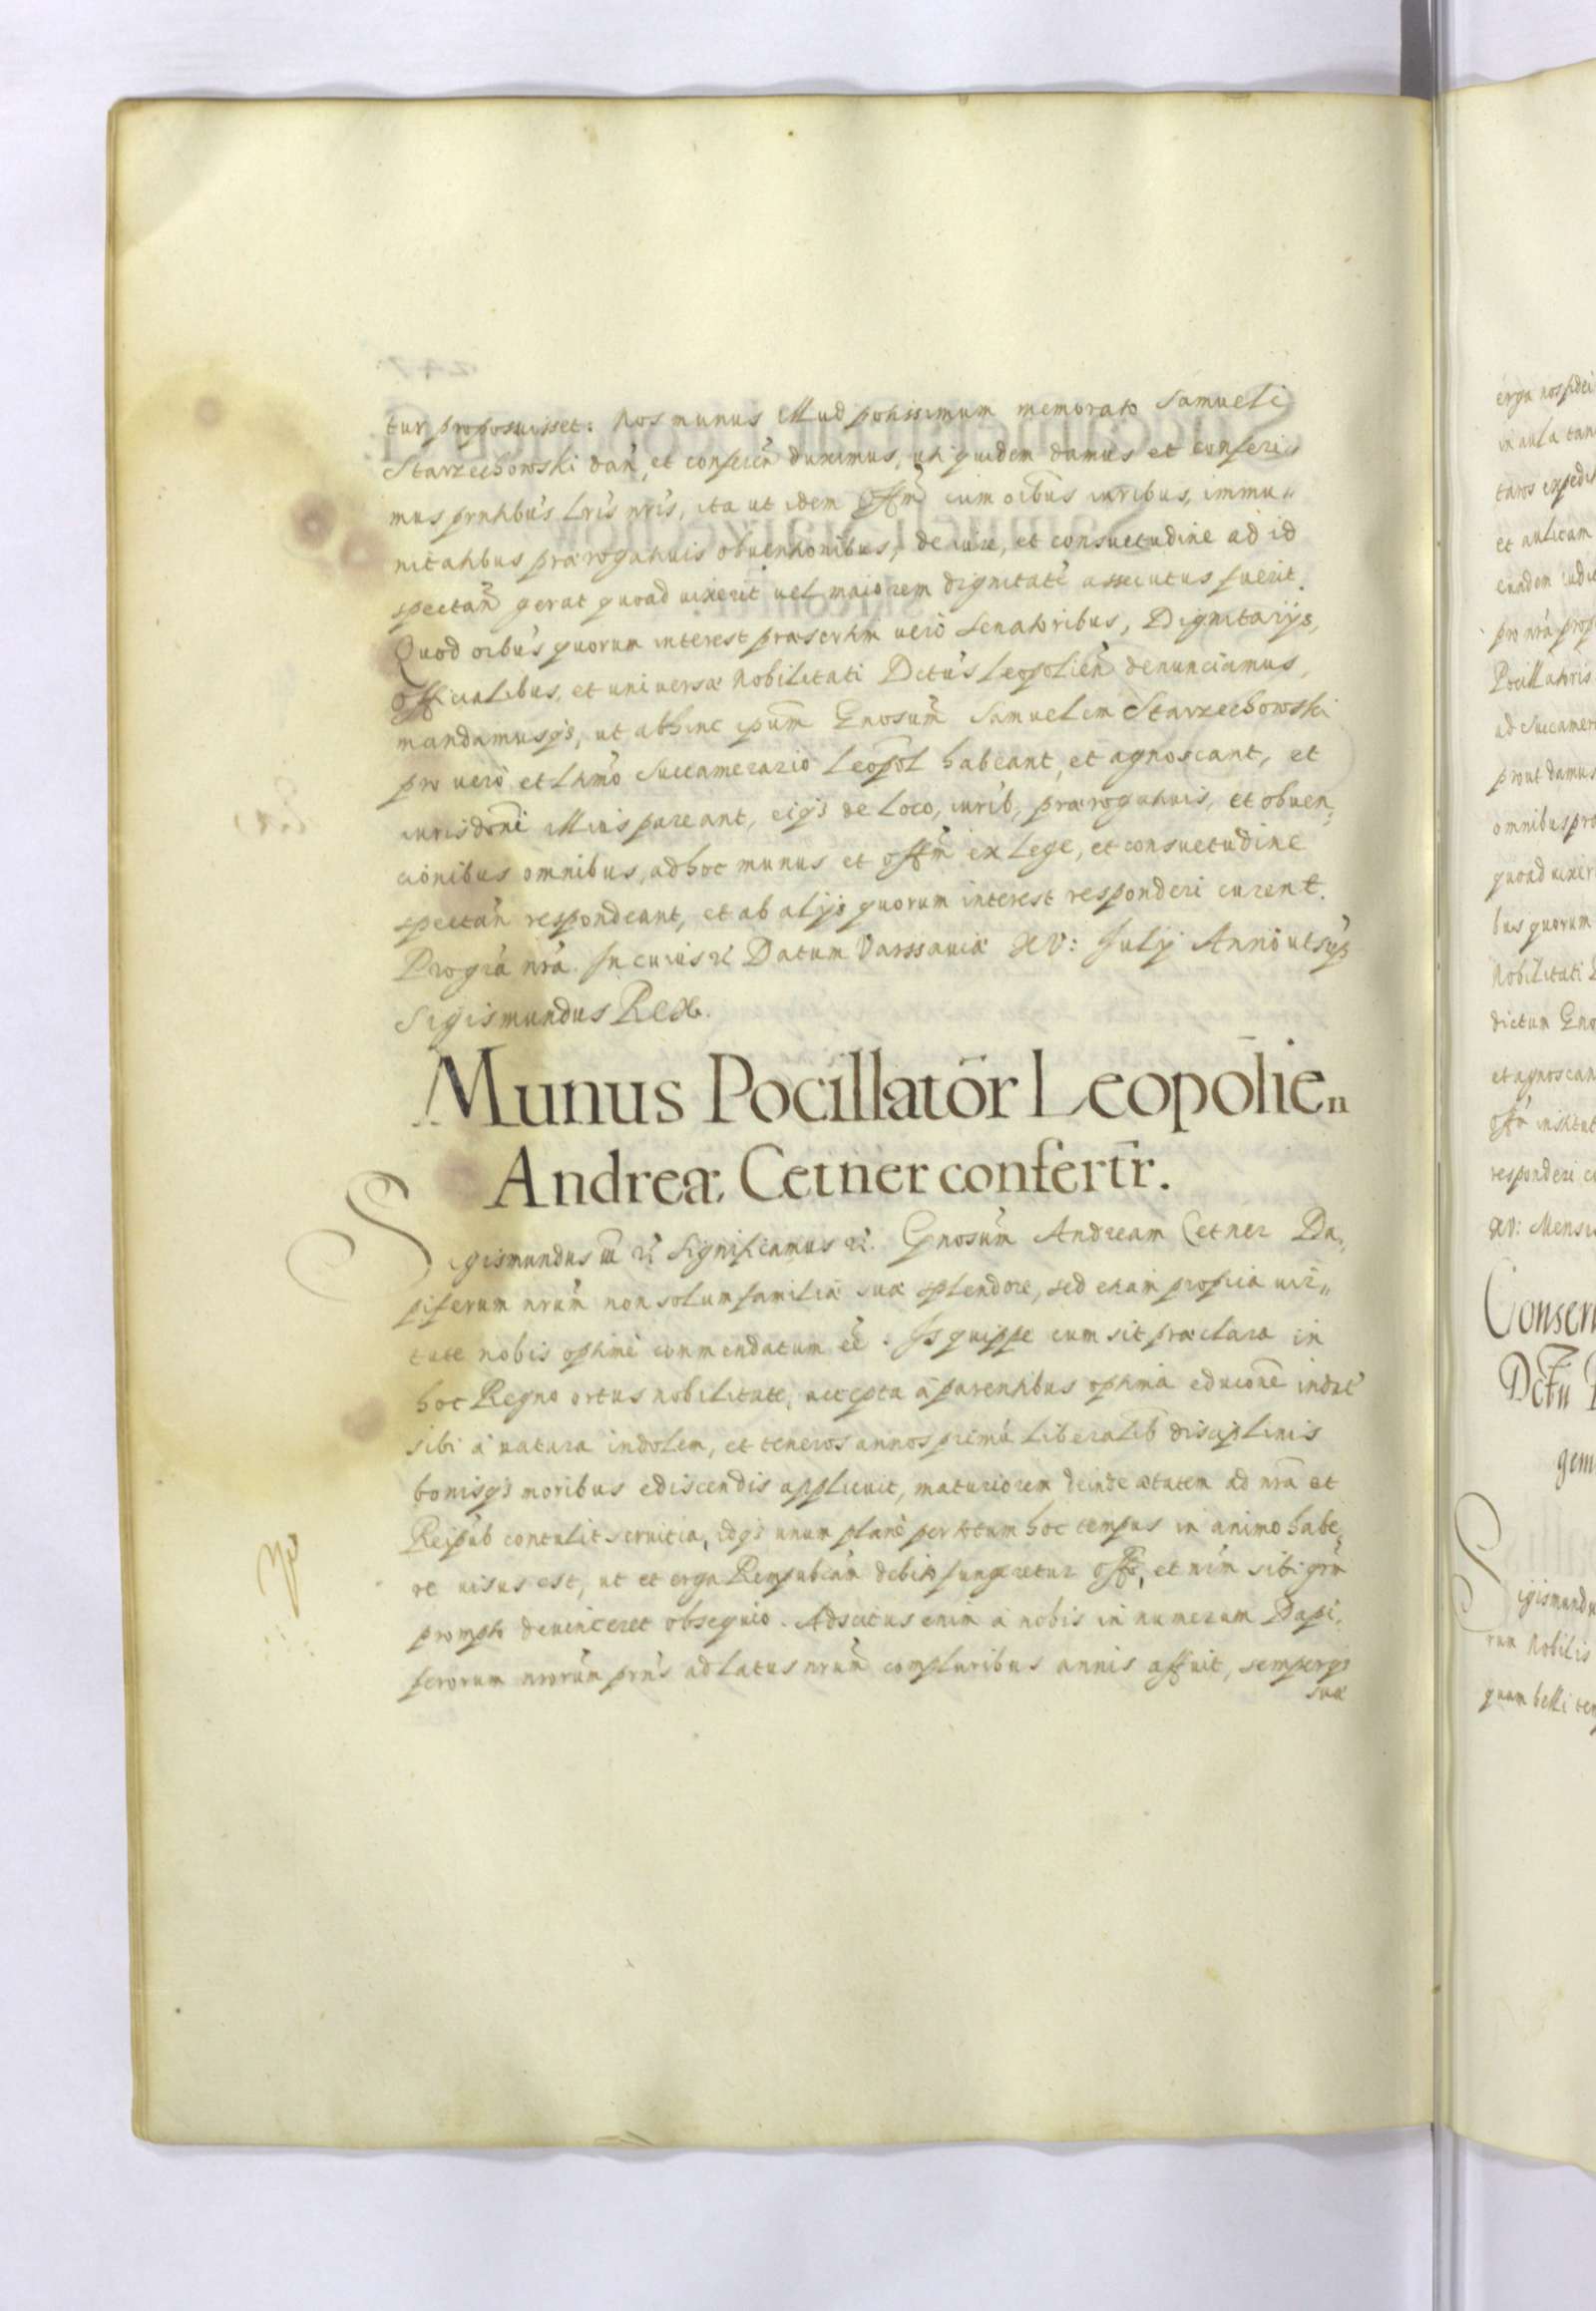 tur proposuisset: Nos munus illud potissimum memorato Samueli
Starzechowski dań, et conferēn duximus, uti quidem damus et conferi„
mus pnntibūs Lrīs nrīs, ita ut idem Offm̄ cum oībus iuribus, immu„
nitatibus prærogatiuis obuentionibus, de iure, et consuetudine ad id
spectań gerat quoad uixerit uel maiorem dignitatē assecutus fuerit.
Quod oībus quorum interest præsertim uerò Senatoribus, Dignitarijs,
Officialibus, et uniuersæ Nobilitati Dctūs Leopolień denunciamus,
mandamusq;, ut abhinc ipūm Gnosūm Samuelem Starzechowski
pro uero et Ltimo Succamerario Leopol̄ habeant, et agnoscant, et
iurisdōni illius pareant, eiq; de loco, iurib, prærogatiuis, et obuen„
cionibus omnibus, ad hoc munus et offm̄ ex Lege, et consuetudine
spectań respondeant, et ab alijs quorum interest responderi curent.
Pro grā nrā. In cuius rź Datum Varssauiæ XV: Julij Anno ut supr̄
Sigismundus Rex.
Munus Pocillatōr Leopōlie„
Andreæ Cetner confertr̄.
Sigismundus iii rź Significamus rź. Gnosūm Andream Cetner Da„
piferum nrūm non solum familiæ suæ splendore, sed etiam propria uir„
tute nobis optimè commendatum eē. Is quippe cum sit præclara in
hoc Regno ortus nobilitate, accepta à parentibus optima educione indit
sibi à natura indolem, et teneros annos primū liberalib̄ disciplinis
bonisq; moribus ediscendis applicuit, maturiorem deinde ætatem ad nrā et
Reipub contulit seruitia, idq; unum planè per totum hoc tempus in animo habe„
re uisus est, ut et erga Rempubcām debito fungeretur offo, et nrm̄ sibi grm̄
prompto deuinceret obsequio. Adscitus enim à nobis in numerum Dapi„
ferorum nrorūm prn̄s ad latus nrūm compluribus annis affuit, semperq;
suæ